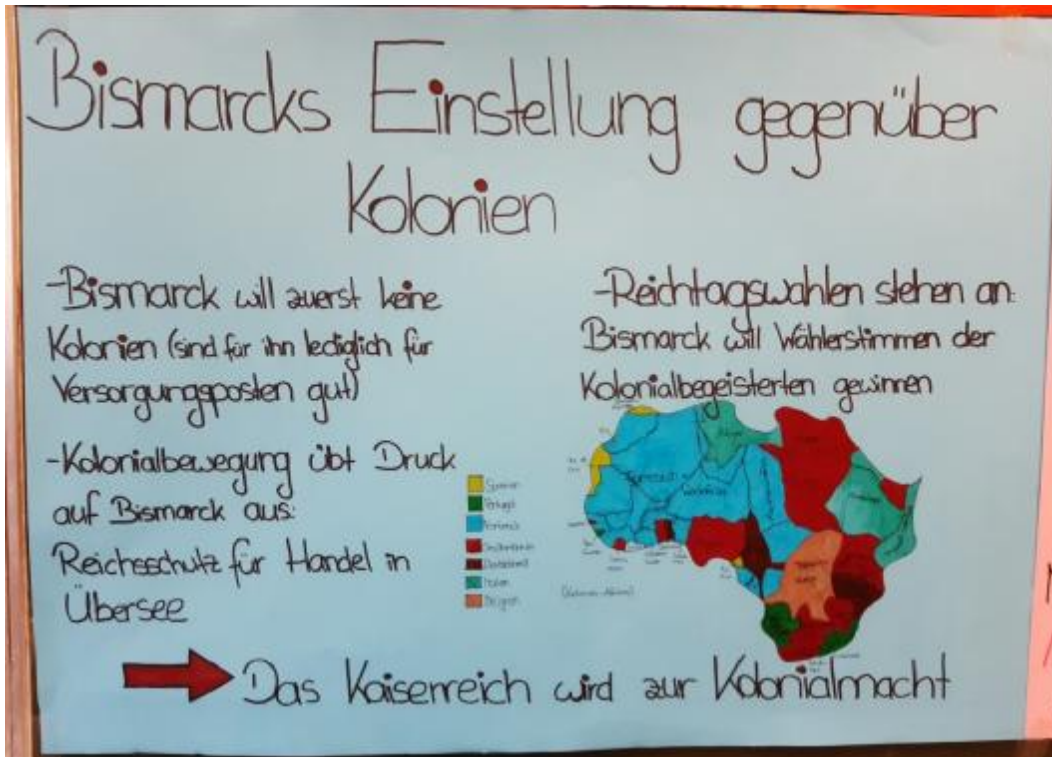 Bismarcks Einstellung gegenüber
Kolonien
-Bismarck will zuerst keine
Kolonien (sind für ihn lediglich für
Versorgungsposten gut)
-Kolonialbewegung übt Druck
auf Bismarck aus:
Reichsschutz für Handel in
Übersee
-Reichtagswahlen stehen an:
Bismarck will Wählerstimmen der
Kolonialbegeisterten gewinnen
Spanien
Portugal
Frankreich
Großbritannien
Deutschland
Italien
Belgien
Das Kaiserreich wird zur Kolonialmacht